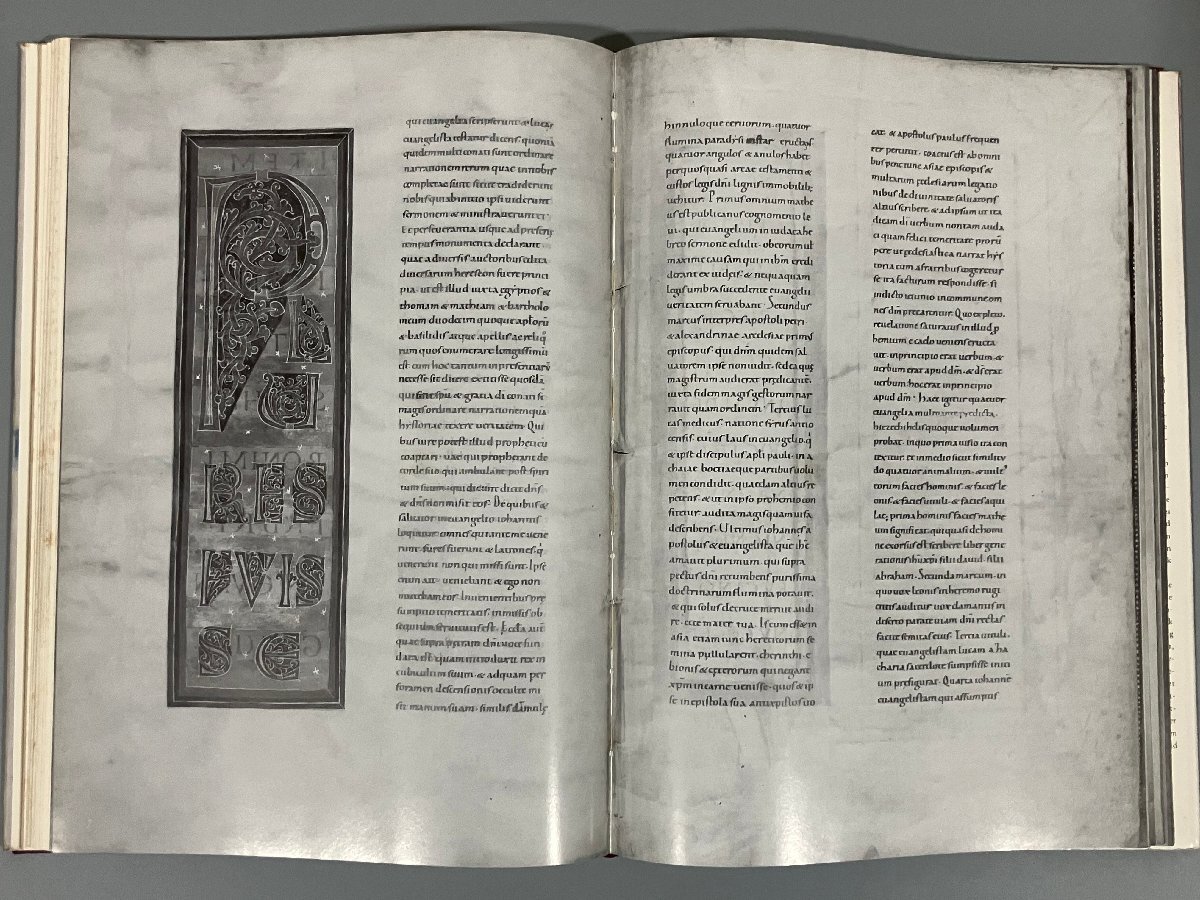 PLU
RES
FVIS
SE
qui euangelia scripserunt & lucas
euangelista testatur dicens. quoniā
quidem multi conati sunt ordinare
narrationem rerum quae in nobis
completae sunt. sicut tradiderunt
nobis qui ab initio ipsi uiderunt
sermonem & ministrauerunt ei.
Et perseuerantia usque ad presens
tempus monumenta declarant
quae a diuersis auctoribus edita
diuersarum hereseon fuere princi
pia. ut est illud iuxta egyptios &
thomam & mathiam & bartholo
meum duodecim quoque aplorū
& basilidis atque apellis ac reliq
rum quos enumerare longissimū
est cum hoc tantum in presentiarū
necesse sit dicere extitisse quosdā
qui sine spu & gratia di conati sī
magis ordinare narrationem quā
hystoriae texere ueritatem. Qui
bus iure potest illud propheticū
coaptari. uae qui prophetant de
corde suo. qui ambulant post spiri
tum suum. qui dicunt dicit dns.
& dns non misit eos. De quibus &
saluator in euangelio iohannis
loquitur. omnes qui ante me uene
runt. fures fuerunt & latrones. q
uenerunt non qui missi sunt. Ipse
enim ait. ueniebant & ego non
mittebam eos. In uenientibus pre
sumptio temeritatis. in missis ob
sequium seruitutis est. Eccla autē
quae supra petram dni uoce fun
data est. quam introduxit rex in
cubiculum suum. & ad quam per
foramen descensionis occultae mi
sit manum suam. similis damulę
hinnuloque ceruorum. quatuor
flumina paradysi instar eructans
quatuor angulos & anulos habet
per quos quasi arcae testamenti &
custos legis dni lignis immobilib;
uehitur. Primus omnium mathe
us est publicanus cognomento le
ui. qui euangelium in iudaea he
breo sermone edidit. ob eorum uł
maxime causam qui in ihm credi
derant ex iudęis. & nequaquam
legis umbra succedente euangelii
ueritatem seruabant. Secundus
marcus interpres apostoli petri
& alexandrinae aecclesiae primus
episcopus. qui dnm quidem sal
uatorem ipse non uidit. sed ea quę
magistrum audierat predicante.
iuxta fidem magis gestorum nar
rauit quam ordinem. Tertius lu
cas medicus. natione syrus antio
censis. cuius laus in euangelio. q
& ipse discipulus apli pauli. in a
chaiae boetiaeque partibus uolu
men condidit. quaedam altius re
petens. & ut in ipso prohemio con
fitetur. audita magis quam uisa
describens. Ultimus iohannes a
postolus & euangelista quem ihc
amauit plurimum. qui supra
pectus dni recumbens purissima
doctrinarum flumina potauit.
& qui solus de cruce meruit audi
re. ecce mater tua. Is cum esset in
asia etiam tunc hereticorum se
mina pullularent. cherinthi. e
bionis & ceterorum qui negant
xpm in carne uenisse. quos & ip
se in epistola sua antixpistos uo
cat. & apostolus paulus frequen
ter percutit. coactus est ab omni
bus pene tunc asiae episcopis &
multarum ęcclesiarum legatio
nibus de diuinitate saluatoris
altius scribere. & ad ipsum ut ita
dicam di uerbum non tam auda
ci quam felici temeritate prorū
pere. ut ęcclesiastica narrat hys
toria cum a fratribus cogeretur
se ita facturum respondisse. si
indicto ieiunio in commune om
nes dnm precarentur. Quo expleto.
reuelatione saturatus in illud p
hemium e caelo ueniens eructa
uit. in principio erat uerbum. &
uerbum erat apud dm. & ds erat
uerbum. hoc erat in principio
apud dm. haec igitur quatuor
euangelia multo ante predicta.
hiezechihelis quoque uolumen
probat. in quo prima uisio ita con
texitur. & in medio sicut similitu
do quatuor animalium. & uult
eorum facies hominis. & facies le
onis. & facies uituli. & facies aqui
lae, prima hominis facies mathe
um significat. qui quasi de homi
ne exorsus est scribere. liber gene
rationis ihu xpi filii dauid. filii
abraham. Secunda marcum. in
quo uox leonis in heremo rugi
entis auditur. uox clamantis in
deserto. parate uiam dni. rectas
facite semitas eius. Tertia uituli.
quae euangelistam lucam a za
charia sacerdote sumpsisse initi
um prefigurat. Quarta iohanne
euangelistam qui assumptis